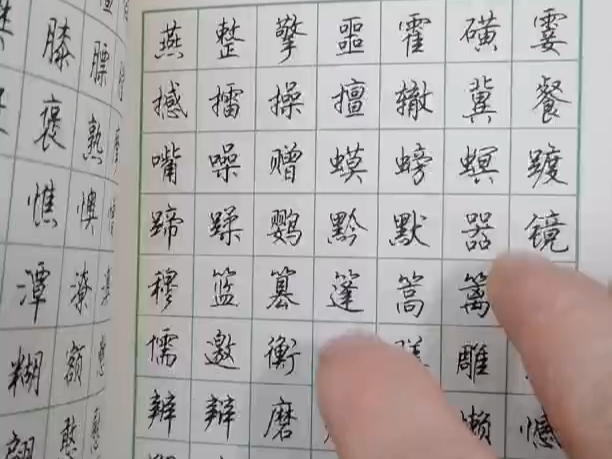 膝 膘
褒 熟
憔 懊
潭 潦
糊 额
翩 憨
燕 整 擎 噩 霍 磺 霎
撼 擂 操 擅 辙 冀 餐
嘴 噪 赠 蟆 螃 螟 踱
蹄 蹂 鹦 黔 默 器 镜
穆 篮 篡 篷 篙 篱
懦 邀 衡 雕
辨 辩 磨 懒 憾